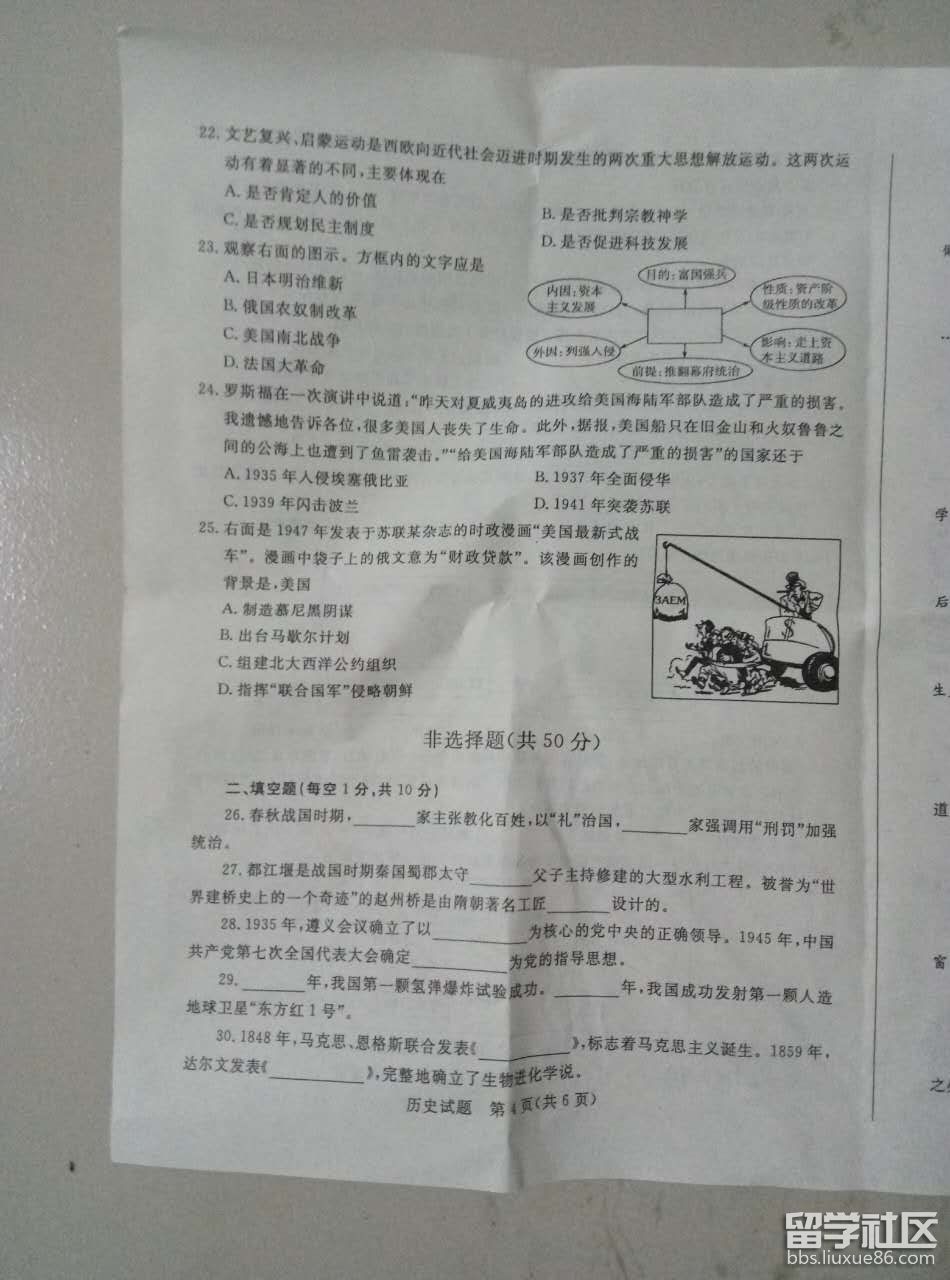 22. 文艺复兴、启蒙运动是西欧向近代社会迈进时期发生的两次重大思想解放运动。这两次运
动有着显著的不同,主要体现在
A. 是否肯定人的价值
B. 是否批判宗教神学
C. 是否规划民主制度
D. 是否促进科技发展
23. 观察右面的图示。方框内的文字应是
A. 日本明治维新
B. 俄国农奴制改革
C. 美国南北战争
D. 法国大革命
目的:富国强兵
内因:资本
主义发展
性质:资产阶
级性质的改革
外因:列强入侵
影响:走上资
本主义道路
前提:推翻幕府统治
24. 罗斯福在一次演讲中说道:“昨天对夏威夷岛的进攻给美国海陆军部队造成了严重的损害。
我遗憾地告诉各位,很多美国人丧失了生命。此外,据报,美国船只在旧金山和火奴鲁鲁之
间的公海上也遭到了鱼雷袭击。”“给美国海陆军部队造成了严重的损害”的国家还于
A. 1935 年入侵埃塞俄比亚
B. 1937 年全面侵华
C. 1939 年闪击波兰
D. 1941 年突袭苏联
25. 右面是 1947 年发表于苏联某杂志的时政漫画“美国最新式战
车”。漫画中袋子上的俄文意为“财政贷款”。该漫画创作的
背景是,美国
A. 制造慕尼黑阴谋
B. 出台马歇尔计划
C. 组建北大西洋公约组织
D. 指挥“联合国军”侵略朝鲜
ЗАЕМ
$
非选择题(共 50 分)
二、填空题(每空 1 分,共 10 分)
26. 春秋战国时期,______家主张教化百姓,以“礼”治国,______家强调用“刑罚”加强
统治。
27. 都江堰是战国时期秦国蜀郡太守______父子主持修建的大型水利工程。被誉为“世
界建桥史上的一个奇迹”的赵州桥是由隋朝著名工匠______设计的。
28. 1935 年,遵义会议确立了以______为核心的党中央的正确领导。1945 年,中国
共产党第七次全国代表大会确定______为党的指导思想。
29. ______年,我国第一颗氢弹爆炸试验成功。______年,我国成功发射第一颗人造
地球卫星“东方红 1 号”。
30. 1848 年,马克思、恩格斯联合发表《______》,标志着马克思主义诞生。1859 年,
达尔文发表《______》,完整地确立了生物进化学说。
历史试题 第 4 页(共 6 页)
学
后
生
道
窗
留学社区
bbs.liuxue86.com